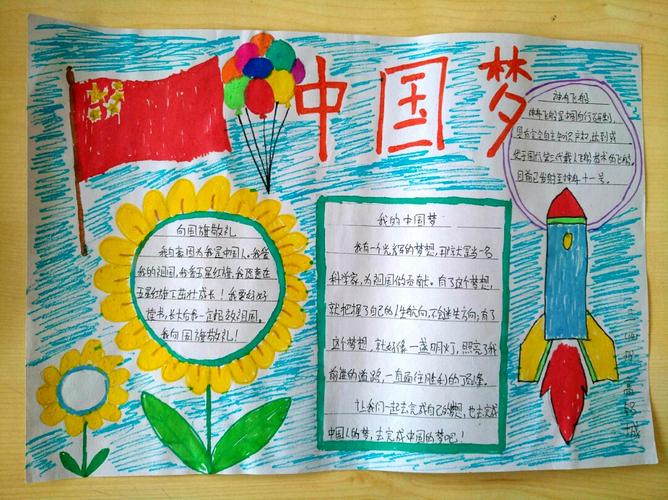 中国梦
神舟飞船
神舟飞船是中国自行研制,
具有完全自主知识产权,达到或
优于国际第三代载人飞船技术的飞船,
目前已发射至神舟十一号。
向国旗敬礼
我自豪因为我是中国人。我爱
我的祖国,我爱五星红旗,我愿意在
五星红旗下茁壮成长!我要好好
读书,长大后我一定报效祖国。
我向国旗敬礼!
我的中国梦
我有一个光辉的梦想,那就是当一名
科学家,为祖国做贡献。有了这个梦想,
就把握了自己的人生航向,不会迷失方向;有了
这个梦想,就好像一盏明灯,照亮了我
前进的道路,一直通往胜利的顶峰。
让我们一起去完成自己的梦想,也去完成
中国人的梦,去完成中国的梦吧!